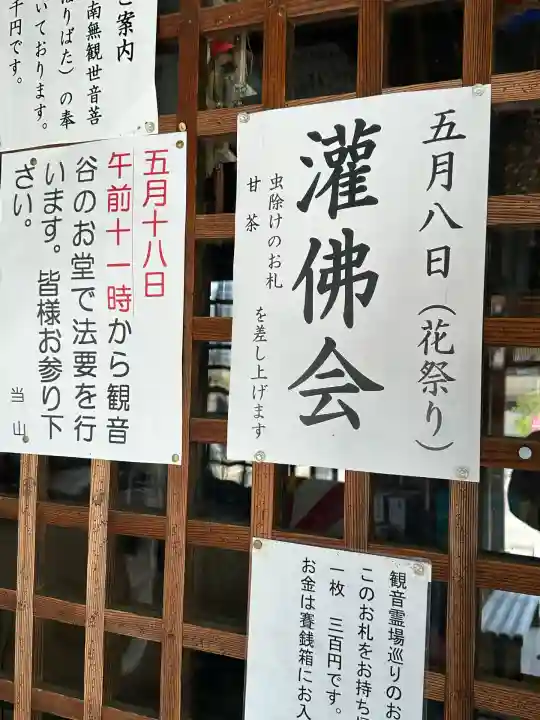 ご案内
南無観世音菩
ばた）の奉
いております。
千円です。
五月八日（花祭り）
灌佛会
虫除けのお札
甘茶
を差し上げます
五月十八日
午前十一時から観音
谷のお堂で法要を行
います。皆様お参り下
さい。
当山
観音霊場巡りのお
このお札をお持ち
一枚　三百円です。
お金は賽銭箱にお入